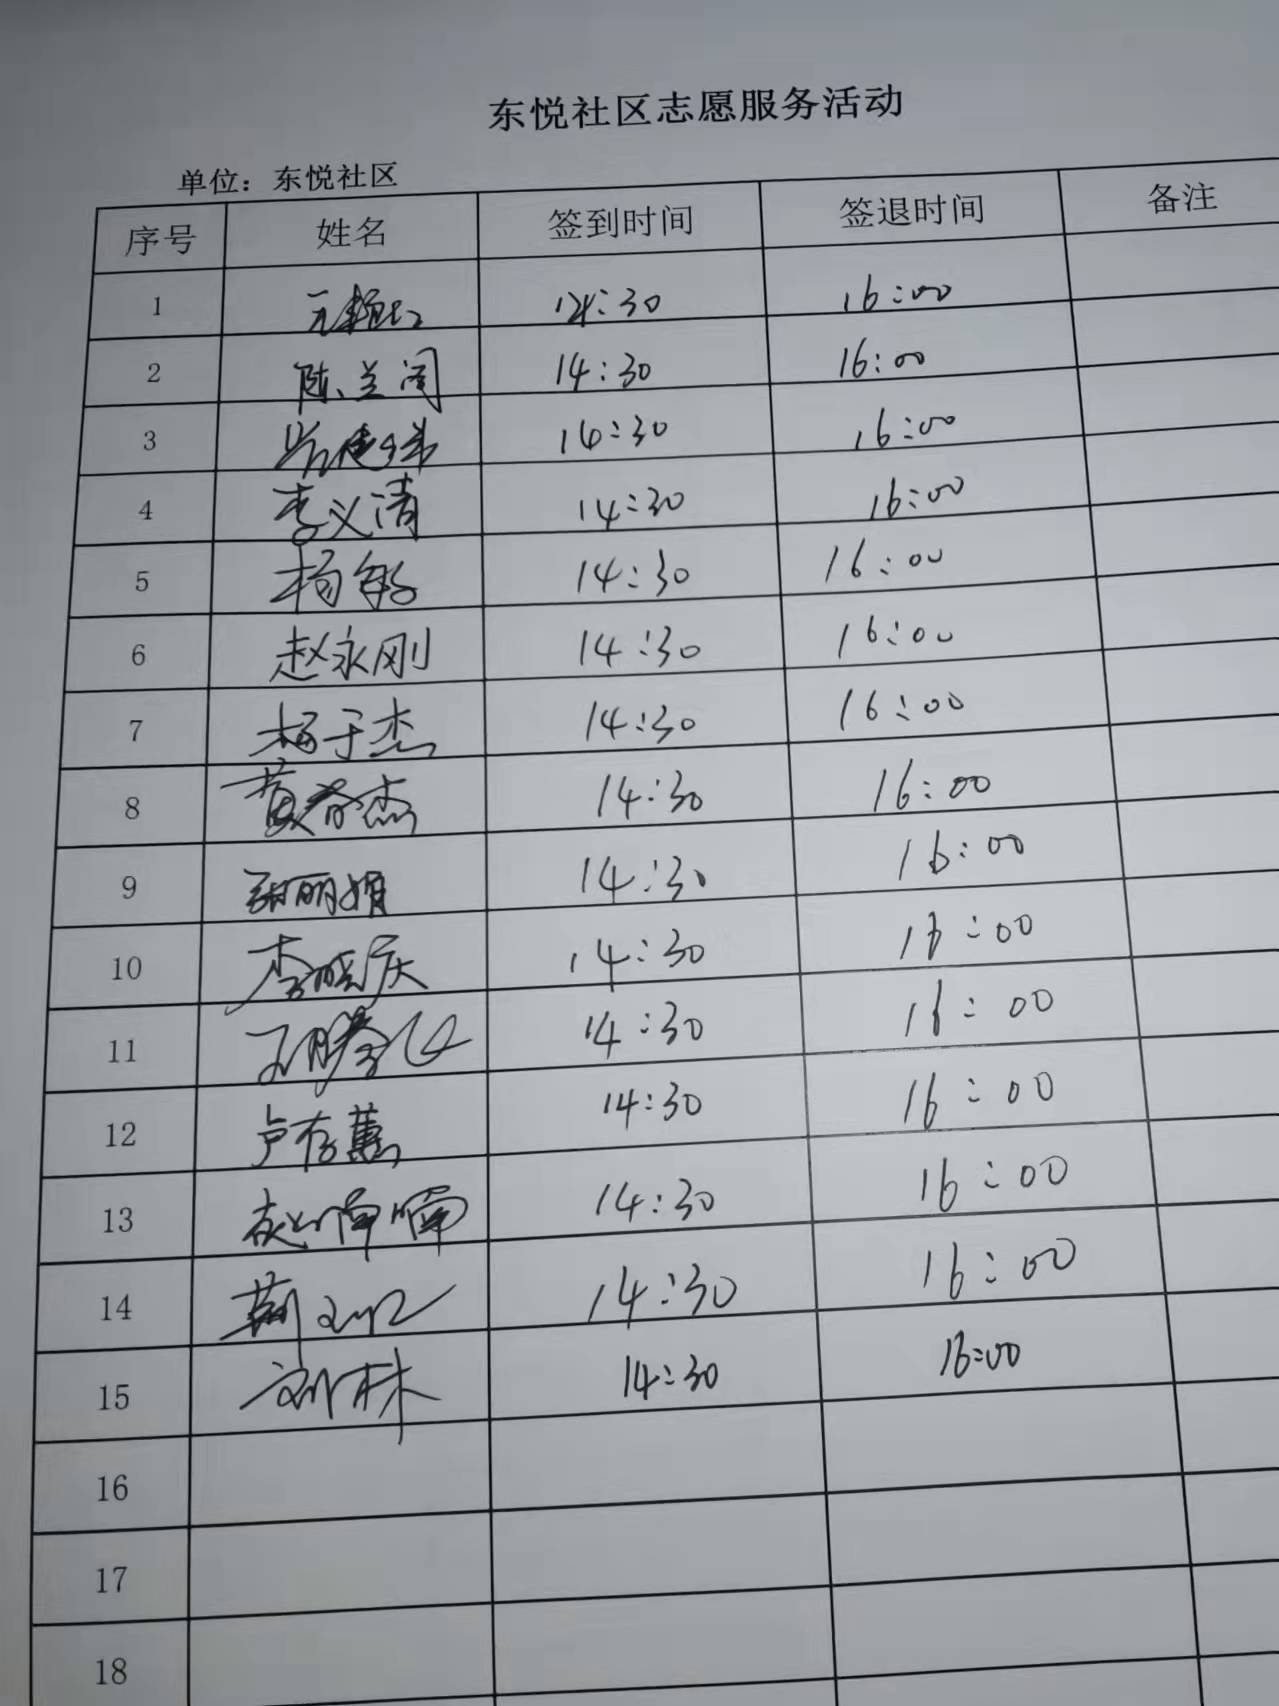 东悦社区志愿服务活动
单位：东悦社区
序号 姓名 签到时间 签退时间 备注
1 14:30 16:00
2 陈兰阁 14:30 16:00
3 14:30 16:00
4 李义清 14:30 16:00
5 杨敏 14:30 16:00
6 赵永刚 14:30 16:00
7 杨于杰 14:30 16:00
8 黄春杰 14:30 16:00
9 胡丽娟 14:30 16:00
10 李晓庆 14:30 16:00
11 王腾飞 14:30 16:00
12 卢存蕙 14:30 16:00
13 赵喃喃 14:30 16:00
14 14:30 16:00
15 刘林 14:30 16:00
16
17
18